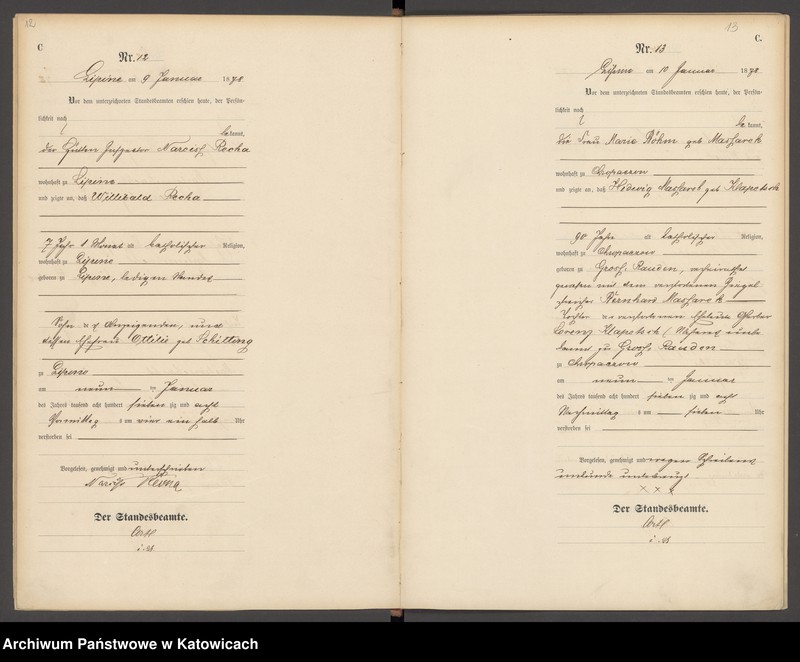 12
C
Nr. 12
Lipine am 9 Januar 1878
Vor dem unterzeichneten Standesbeamten erschien heute, der Persön-
lichkeit nach
be kannt,
der Hütten Inspector Narciss Recha
wohnhaft zu Lipine
und zeigte an, daß Willibald Recha
7 Jahr 1 Monat alt katholischer Religion,
wohnhaft zu Lipine
geboren zu Lipine, ledigen Standes
Sohn des Anzeigenden, und
dessen Ehefrau Ottilie geb Schilling
zu Lipine
am neun ten Januar
des Jahres tausend acht hundert sieben zig und acht
Vormittag s um vier ein halb Uhr
verstorben sei
Vorgelesen, genehmigt und unterschrieben
Narciss
Der Standesbeamte.
i. V.
13
C.
Nr. 13
Lipine am 10 Januar 1878
Vor dem unterzeichneten Standesbeamten erschien heute, der Persön-
lichkeit nach
be kannt,
die Frau Marie Böhm geb Massarek
wohnhaft zu Chropaczow
und zeigte an, daß Hedwig Massarek geb Klapetsek
90 Jahr alt katholischer Religion,
wohnhaft zu Chropaczow
geboren zu Gross Rauden, verheirathet
gewesen mit dem verstorbenen Ziegel
streicher Bernhard Massarek
Tochter der verstorbenen Eheleute
Lorenz Klapetsek
zu Gross Rauden
zu Chropaczow
am neun ten Januar
des Jahres tausend acht hundert sieben zig und acht
Nachmittag s um sieben Uhr
verstorben sei
Vorgelesen, genehmigt und wegen Schreibens
unkunde unterkreuzt
x x x
Der Standesbeamte.
i. V.
Archiwum Państwowe w Katowicach